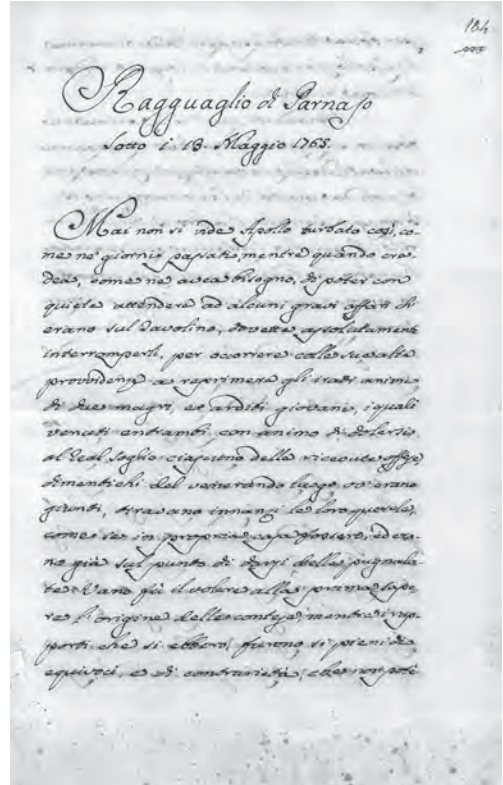 184
Ragguaglio di Parnaso
Sotto i 18. Maggio 1765.
Mai non si vide Apollo turbato così, co-
me ne' giorni passati, mentre quando cre-
dea, come ne avea bisogno, di poter con
quiete attendere ad alcuni gravi affari ch'
erano sul Tavolino, dovette assolutamente
interromperli, per ocorrere colle sue alte
providenze a reprimere gli irati animi
di due magri, et arditi giovani, i quali
venuti entrambi con animo di dolersi
al Real Soglio ciascuno delle ricevute offese,
dimentichi del venerando luogo ov'erano
giunti, tiravano innanzi le loro querele,
come se in propria casa fossero, ed era-
no già sul punto di darsi delle pugnala-
te. Vano fù il volere alla prima sape-
re l'origine delle contese, mentre i rap-
porti che si ebbero, furono sì pieni di
equivoci, e di contrarietà, che non potè